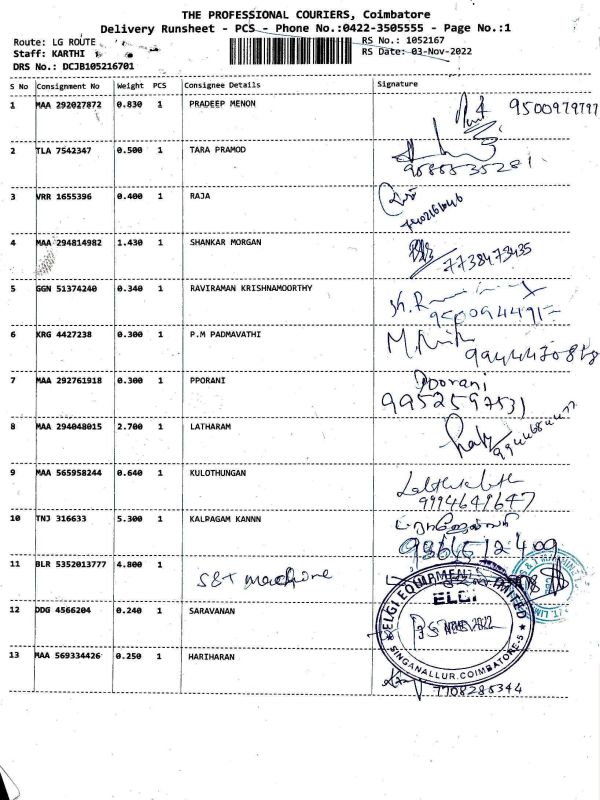 THE PROFESSIONAL COURIERS, Coimbatore
Delivery Runsheet - PCS - Phone No.:0422-3505555 - Page No.:1
Route: LG ROUTE
RS No.: 1052167
Staff: KARTHI
RS Date: 03-Nov-2022
DRS No.: DCJB105216701
S No Consignment No Weight PCS Consignee Details Signature
1 MAA 292027872 0.830 1 PRADEEP MENON
2 TLA 7542347 0.500 1 TARA PRAMOD
3 VRR 1655396 0.400 1 RAJA
4 MAA 294814982 1.430 1 SHANKAR MORGAN 7738473435
5 GGN 51374240 0.340 1 RAVIRAMAN KRISHNAMOORTHY
6 KRG 4427238 0.300 1 P.M PADMAVATHI
7 MAA 292761918 0.300 1 PPORANI Poorani
9952597531
8 MAA 294048015 2.700 1 LATHARAM
9 MAA 565958244 0.640 1 KULOTHUNGAN
9994649647
10 TNJ 316633 5.300 1 KALPAGAM KANNN
9361512409
11 BLR 5352013777 4.800 1 S&T machine
ELGI EQUIPMENTS LIMITED
ELGI
SINGANALLUR, COIMBATORE-5
12 DDG 4566204 0.240 1 SARAVANAN
13 MAA 569334426 0.250 1 HARIHARAN
7708285344